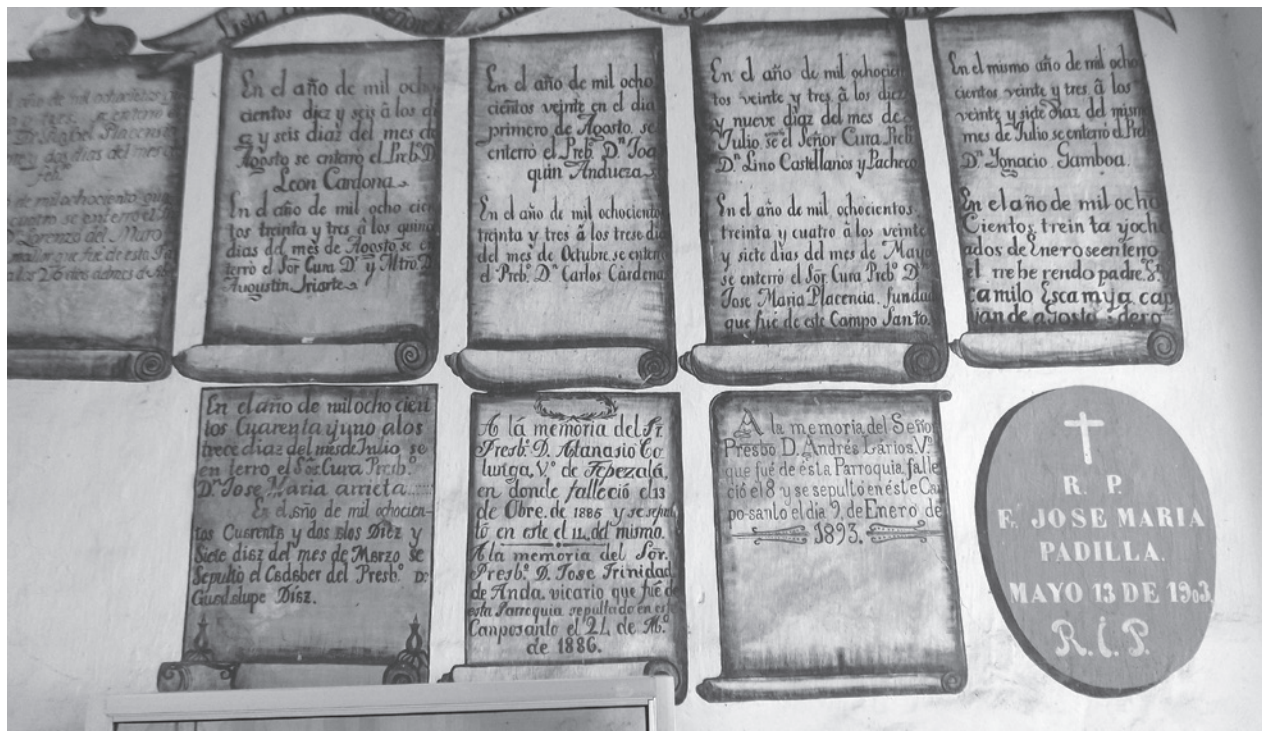 En el año de mil ocho
cientos diez y seis â los di
ez y seis diaz del mes de
Agosto se enterró el Preb.º D.
Leon Cardona
En el año de mil ocho cien
tos treinta y tres â los quince
dias del mes de Agosto se en
terró el Sor Cura D.ⁿ y Mtrō. D.
Augustin Iriarte
En el año de mil ocho
cientos veinte en el dia
primero de Agosto, se
enterró el Preb. D.ⁿ Joa
quin Andueza
En el año de mil ochocientos
treinta y tres â los trese dias
del mes de Octubre, se enterró
el Preb.º D.ⁿ Carlos Cárdena
En el año de mil ochocien
tos veinte y tres â los diez
y nueve diaz del mes de
Julio se el Señor Cura Preb.
D.ⁿ Lino Castellanos y Pacheco
En el año de mil ochocientos
treinta y cuatro â los veinte
y siete dias del mes de Mayo
se enterró el Sor̄. Cura Preb.º D.ⁿ
Jose Maria Placencia, fundad
que fué de este Campo Santo.
En el mismo año de mil ocho
cientos veinte y tres â los
veinte y siete diaz del mism
mes de Julio se enterró el Preb
D.ⁿ Ygnacio Gamboa.
En el año de mil ocho
Cientos trein ta y och
ados de Enero se enterro
el rrebe rendo padre
camilo Escamya cap
de agosto
de mil ochocientos
se enterró
Dr. Rafael Placensia
y dos dias del mes
feb.º
de mil ochociento
cuatro se enterró el
Lorenzo del Muro
que fue de esta
En el año de mil ocho cien
tos Cuarenta y uno a los
trece diaz del mes de Julio se
en terro el Sor Cura Presb.º
D.ⁿ Jose Maria arrieta
En el año de mil ochocien-
tos Cuarenta y dos alos Diez y
Siete diaz del mes de Marzo se
Sepultó el Cadaber del Presb.º D.
Guadalupe Díaz.
A la memoria del Sr.
Presb.º D. Atanasio Co
lunga, V.º de Tepezalá,
en donde falleció el 13
de Obre. de 1886 y se sepul
tó en este el 14 del mismo.
A la memoria del Sōr.
Presb.º D. Jose Trinidad
de Anda, vicario que fué de
esta Parroquia sepultado en este
Canposanto el 24 de
de 1886.
A la memoria del Señor
Presbo D. Andrés Larios. V.º
que fué de ésta Parroquia, falle
ció el 8 y se sepultó en éste Cam
po-santo el dia 9, de Enero de
1893.
R. P.
F. JOSE MARIA
PADILLA.
MAYO 13 DE 1903.
R.I.P.